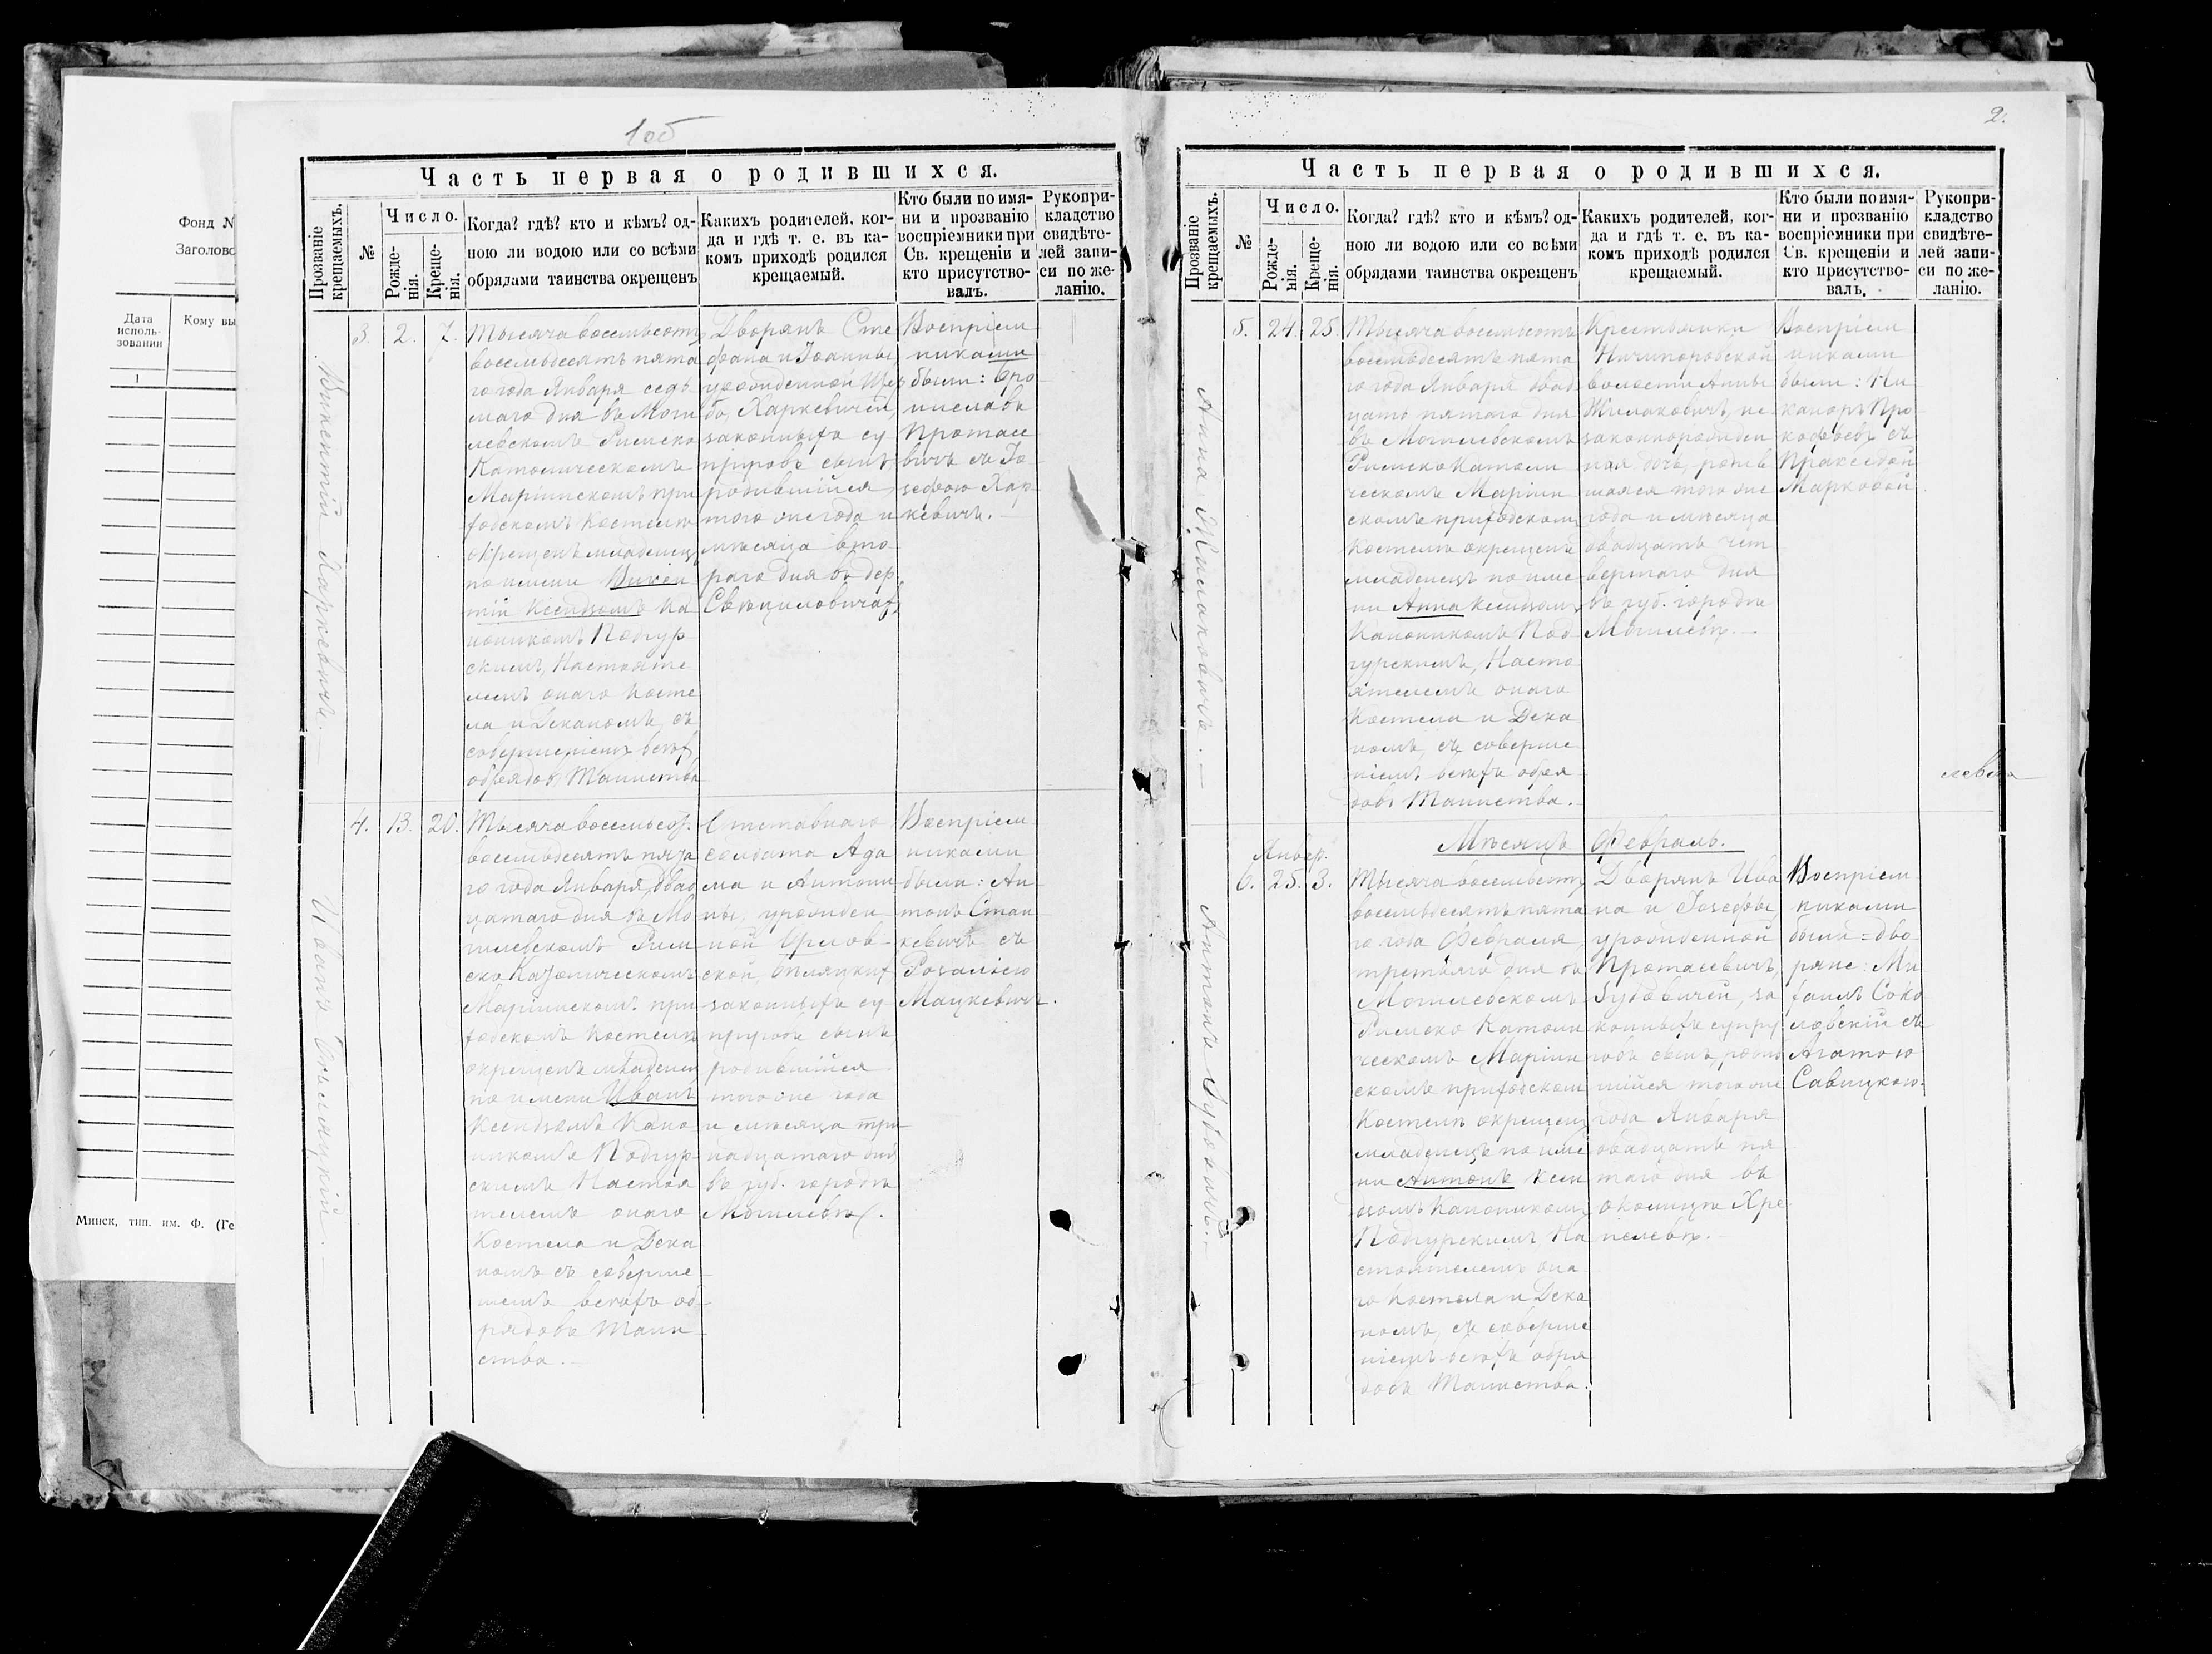 Фонд N
Заголово
Дата
исполь-
зовании
Кому вы
1
Минск, тип. им. Ф. (Ге
1об
Часть первая о родившихся.
Прозваніе
крещаемыхъ.
№
Число.
Рожде-
нія.
Креще-
нія.
Когда? гдѣ? кто и кѣмъ? од-
ною ли водою или со всѣми
обрядами таинства окрещенъ
Какихъ родителей, ког-
да и гдѣ т. е. въ ка-
комъ приходѣ родился
крещаемый.
Кто были по имя-
ни и прозванію
воспріемники при
Св. крещеніи и
кто присутство-
валъ.
Рукопри-
кладство
свидѣте-
лей запи-
си по же-
ланію.
Викентій Харкевичъ.
3.
2.
7.
Тысяча восемьсотъ
восемьдесятъ пята
го года Января седь
маго дня въ Моги
левскомъ Римско
Католическомъ
Маріинскомъ при
ходскомъ Костелѣ
окрещенъ младенец
по имени Викен
тій Ксендзомъ Ка
ноникомъ Подгур
скимъ, Настояте
лемъ онаго Косте
ла и Деканомъ, съ
совершеніемъ всѣхъ
обрядовъ Таинства
Дворянъ Сте
фана и Іоанны
урожденной
Харкевичей
законныхъ су
пруговъ сынъ,
родившійся
того же года и
мѣсяца вто
раго дня въ дер.
Воспріем
никами
были: Бро
ниславъ
Протасе
вичъ съ Іо
зефою Хар
кевичъ.
Иванъ Бѣляцкій.
4.
13.
20.
Тысяча восемьсот.
восемьдесятъ пята
го года Января двад
цатаго дня въ Мо
гилевскомъ Рим
ско Католическомъ
Маріинскомъ при
ходскомъ Костелѣ
окрещенъ младенец
по имени Иванъ
Ксендзомъ Кано
никомъ Подгур
скимъ Настоя
телемъ онаго
Костела и Дека
номъ съ соверше
ніемъ всѣхъ об
рядовъ Таин
ства.
Отставнаго
солдата Ада
ма и Антони
ны, урожден
ной Орлов
ской Бѣляцких
законныхъ су
пруговъ сынъ
родившійся
того же года
и мѣсяца три
надцатаго дня
въ губ. городѣ
Могилевѣ.
Воспріем
никами
были: Ан
тонъ Стан
кевичъ съ
Розаліею
Мацкевичъ.
2.
Часть первая о родившихся.
Прозваніе
крещаемыхъ.
№
Число.
Рожде-
нія.
Креще-
нія.
Когда? гдѣ? кто и кѣмъ? од-
ною ли водою или со всѣми
обрядами таинства окрещенъ
Какихъ родителей, ког-
да и гдѣ т. е. въ ка-
комъ приходѣ родился
крещаемый.
Кто были по имя-
ни и прозванію
воспріемники при
Св. крещеніи и
кто присутство-
валъ.
Рукопри-
кладство
свидѣте-
лей запи-
си по же-
ланію.
Анна
5.
24.
25.
Тысяча восемьсотъ
восемьдесятъ пята
го года Января двад
цать пятаго дня
въ Могилевскомъ
Римско Католи
ческомъ Маріин
скомъ приходском
Костелѣ окрещенъ
младенецъ по име
ни Анна Ксендзом
Каноникомъ Под
гурскимъ, Насто
ятелемъ онаго
Костела и Дека
номъ, съ соверше
ніемъ всѣхъ обря
довъ Таинства.
Крестьянки
волости Анны
не
законнорожден
ная дочь, родив
шаяся того же
года и мѣсяца
двадцать чет
вертаго дня
въ губ. городѣ
Могилевѣ.
Воспріем
никами
были: Ни
каноръ Про
кофьевъ съ
Пракседой
Марковой.
Мѣсяцъ Февраль.
Антонъ Зубовичъ.
Январ.
6.
25.
3.
Тысяча восемьсотъ
восемьдесятъ пята
го года Февраля
третьяго дня въ
Могилевскомъ
Римско Католи
ческомъ Маріин
скомъ приходском
Костелѣ окрещен
младенецъ по име
ни Антонъ Ксен
дзомъ Каноникомъ
Подгурскимъ На
стоятелемъ она
го Костела и Дека
номъ, съ соверше
ніемъ всѣхъ обря
довъ Таинства.
Дворянъ Ива
на и Іозефы,
урожденной
Протасевичъ,
Зубовичей, за
конныхъ супру
говъ сынъ, родив
шійся того же
года Января
двадцать пя
таго дня въ
околицѣ Хре
пелевѣ.
Воспріем
никами
были: дво
ряне: Ми
хаилъ Соко
ловскій съ
Агатою
Савицкою.